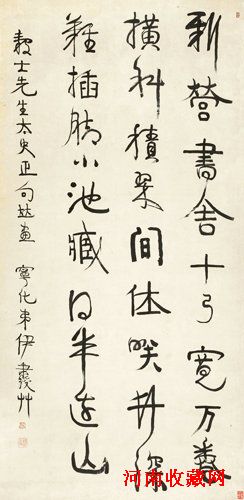 新營書舍十弓寬万卷
橫斜積案間休笑井深
難插脚小池臧得半邊山
穀士先生太史正句並畫 寧化弟伊
河南收藏网